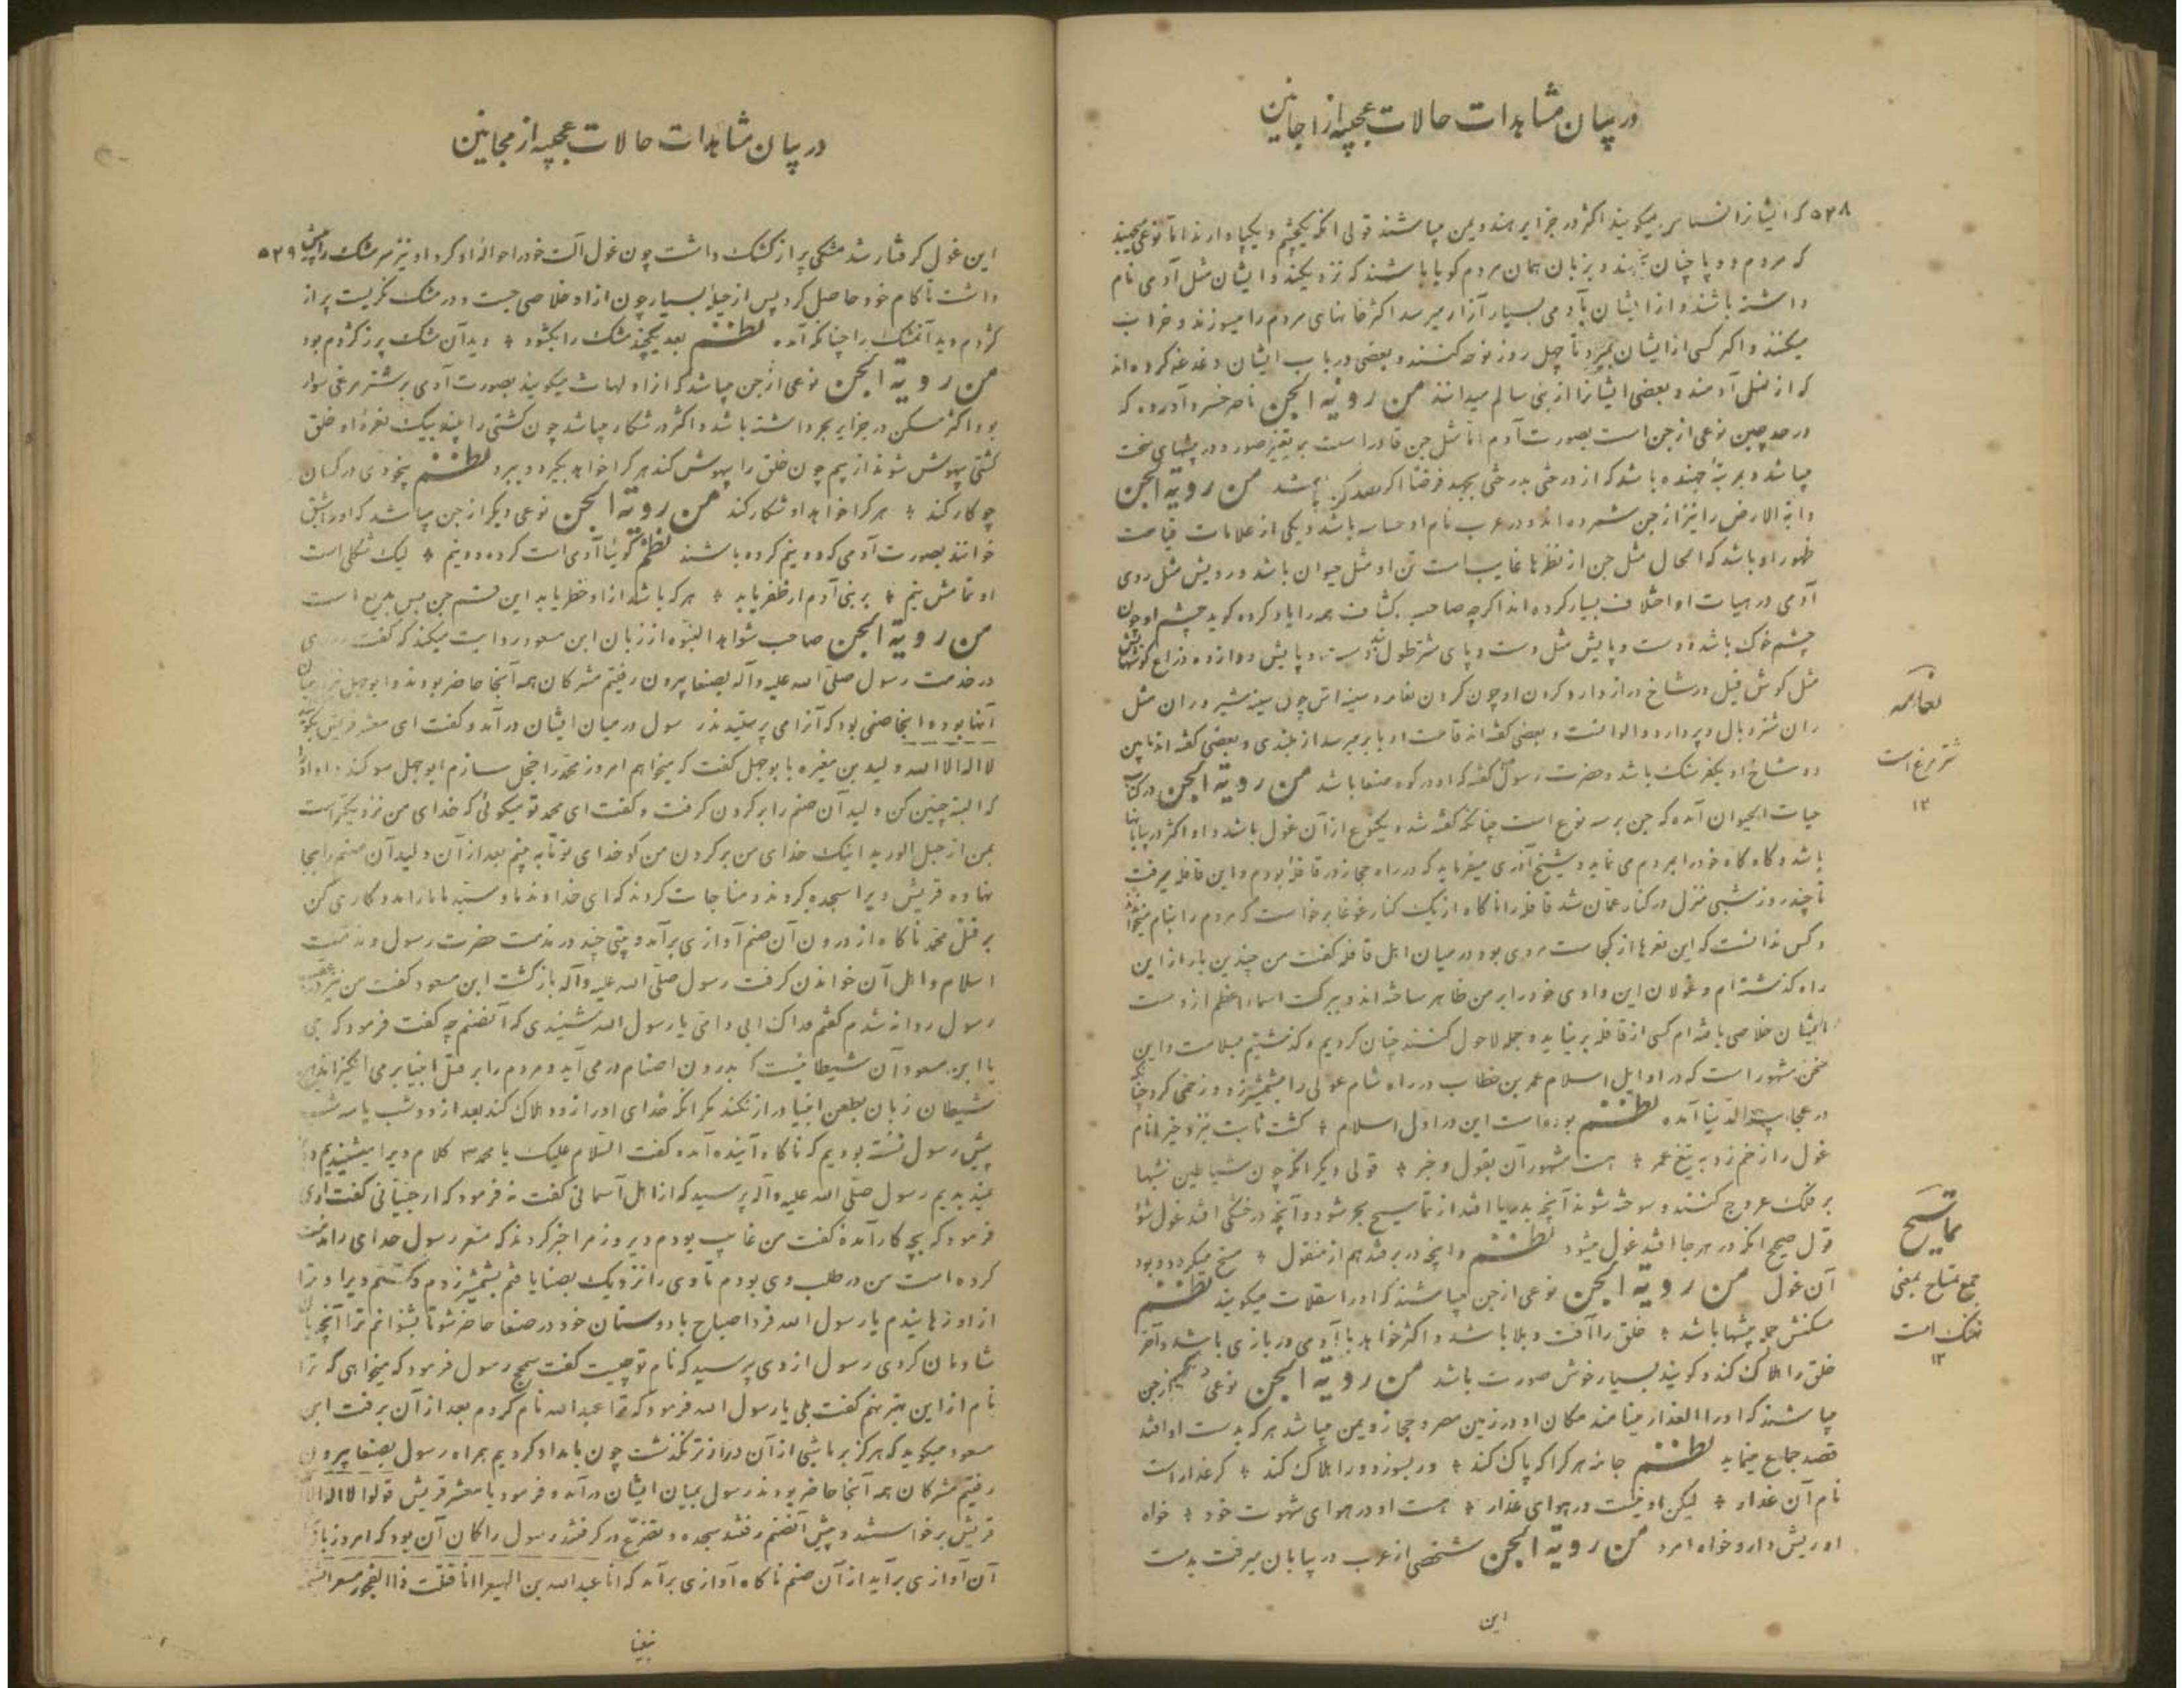 در بیان مشاهدات حالات عجیبه از اجانین
۵۲۸ که ایشانرا نسناس میگویند اکثر در جزایر هند و یمن میباشند قولی آنکه یکچشم و یکپا دارند اما نوعی
که مردم دو پا چنان و بزبان همان مردم گویا باشند که نزدیکند و ایشان مثل آدمی نام
داشته باشند و از ایشان بآدمی بسیار آزار میرسد اکثر خانهای مردم را میسوزند و خراب
میکنند و اگر کسی از ایشان بمیرد تا چهل روز نوحه کنند و بعضی در باب ایشان دغدغه کرده اند
که از نسل آدمند و بعضی ایشانرا از بنی سالم میدانند من رویة الجن ناصر خسرو آورده که
در حد چین نوعی از جن است بصورت آدم اما مثل جن قادر است بر تغیر صور و در بیشهای سخت
میباشد و بمرتبهٔ جهنده باشد که از درختی بدرختی بجهد فرضا اگر باشد من رویة الجن
دابة الارض را نیز از جن شمرده اند و در عرب نام او جساسه باشد و یکی از علامات قیامت
ظهور او باشد که الحال مثل جن از نظرها غایب است تن او مثل حیوان باشد و رویش مثل روی
آدمی در هیات او اختلاف بسیار کرده اند اگرچه صاحب کشاف همه را یاد کرده گوید چشم او چون
چشم خوک باشد و دست و پایش مثل دست و پای شتر طول دست و پایش دوازده ذراع گوشهاش
مثل گوش فیل و شاخ دراز دارد و گردن او چون گردن نعامه و سینه اش چون سینه شیر و ران مثل
ران شتر و بال و پر دارد و الوانست و بعضی گفته اند قامت او با بر میرسد از بلندی و بعضی گفته اند مابین
دو شاخ او یکفرسنگ باشد و حضرت رسول گفته که او در کوه صفا باشد من رویة الجن در کتاب
حیات الحیوان آمده که جن بر سه نوع است چنانکه گفته شد و یکنوع از آن غول باشد و او اکثر در بیابانها
باشد و گاه گاه خود را بمردم می نماید و شیخ آذری میفرماید که در راه حجاز در قافله بودم و این قافله میرفت
تا چند روز شبی منزل در کنار عمان شد قافله را ناگاه از یک کنار غوغا برخاست که مردم را بنام میخواندند
و کس ندانست که این نعرها از کجاست مردی بود در میان اهل قافله گفت من چندین بار از این
راه گذشته ام و غولان این وادی خود را بر من ظاهر ساخته اند و ببرکت اسماء اعظم از دست
ایشان خلاصی یافته ام کسی از قافله بر نیاید و جمله لاحول کنند چنان کردیم و گذشتیم بسلامت و این
سخن مشهور است که در اوایل اسلام عمر بن خطاب در راه شام غولی را بشمشیر زد و زخمی کرد چنانکه
در عجایب الدنیا آمده نظم بوده است این در اول اسلام ٭ گشت ثابت بنزد خیر انام
غول را زخم زد به تیغ عمر ٭ هست مشهور آن بقول و خبر ٭ قولی دیگر آنکه چون شیاطین شبها
بر فلک عروج کنند و سوخته شوند آنچه بدریا افتد از تماسیح بحر شود و آنچه در خشکی افتد غول شود
قول صحیح آنکه در هر جا افتد غول میشود نظم و آنچه در بر فتد هم از منقول ٭ مسخ میگردد و بود
آن غول من رویة الجن نوعی از جن میباشند که او را سقلات میگویند نظم
مسکنش جمله بیشها باشد ٭ خلق را آفت و بلا باشد و اکثر خواهد با آدمی در بازی باشد و آخر
خلق را هلاک کند و گویند بسیار خوش صورت باشد من رویة الجن نوعی دیگر از جن
میباشند که او را الغدار مینامند مکان او در زمین مصر و حجاز و یمن میباشد هر که بدست او افتد
قصد جماع مینماید نظم جامه هر کرا که پاک کند ٭ ور بسوزد ورا هلاک کند ٭ گر غدار است
نام آن غدار ٭ لیکن او نیست در هوای عذار ٭ هست او در هوای شهوت خود ٭ خواه
او ریش دارد و خواه امرد من رویة الجن شخصی از عرب در بیابان میرفت بدست
این
نعامه
شتر مرغ است
۱۲
تماسیح
جمع تمساح بمعنی
نهنگ است
۱۲
در بیان مشاهدات حالات عجیبه از مجانین
این غول گرفتار شد مشکی پر از کشک داشت چون غول آلت خود را حوالهٔ او کرد او نیز سر مشک را پیش ۵۲۹
داشت تا کام خود حاصل کرد پس از حیلهٔ بسیار چون از او خلاصی جست و در مشک نگریست پر از
کژدم دید آنمشک را چنانکه آمده نظم بعد یکچند مشک را بگشود ٭ دید آن مشک پر ز کژدم بود
من رویة الجن نوعی از جن میباشد که از او لهاث میگویند بصورت آدمی بر شتر مرغی سوار
بود و اکثر مسکن در جزایر بحر داشته باشد و اکثر در شکار میباشد چون کشتی را بیند بیک نعرهٔ او خلق
کشتی بیهوش شوند از بیم چون خلق را بیهوش کند هر کرا خواهد بگیرد و ببرد نظم بیخودی در کسان
چو کار کند ٭ هر کرا خواهد او شکار کند من رویة الجن نوعی دیگر از جن میباشد که او را شق
خوانند بصورت آدمی که دو نیم کرده باشند نظم گوئیا آدمی است کرده دو نیم ٭ لیک شکلی است
او تمامش نیم ٭ بر بنی آدم ار ظفر یابد ٭ هر که باشد از او خطر یابد این قسم جن بس بدیع است
من رویة الجن صاحب شواهد النبوه از زبان ابن مسعود روایت میکند که گفت روزی
در خدمت رسول صلی الله علیه وآله بصفا بیرون رفتیم مشرکان همه آنجا حاضر بودند و ابوجهل نیز در میان
آنها بود و اینجا صنمی بود که آنرا می پرستیدند رسول در میان ایشان در آمد و گفت ای معشر قریش بگوئید
لا اله الا الله ولید بن مغیره با بوجهل گفت که میخواهم امروز محمد را خجل سازم ابوجهل سوگند داد او را
که البته چنین کن ولید آن صنم را بر گردن گرفت و گفت ای محمد تو میگوئی که خدای من نزدیکتر است
بمن از حبل الورید اینک خدای من بر گردن من کو خدای تو تا به بینم بعد از آن ولید آن صنم را بجا
نهاده قریش ویرا سجده کردند و مناجات کردند که ای خداوند ما و سید ما ما را مددکاری کن
بر قتل محمد ناگاه از درون آن صنم آوازی برآمد و بیتی چند در مذمت حضرت رسول و مذمت
اسلام و اهل آن خواندن گرفت رسول صلی الله علیه وآله بازگشت ابن مسعود گفت من نیز در عقب
رسول روانه شدم گفتم فداک ابی و امی یا رسول الله شنیدی که آنصنم چه گفت فرمود که بلی
یا ابن مسعود آن شیطانیست که بدرون اصنام در می آید و مردم را بر قتل انبیا بر می انگیزاند
شیطان زبان بطعن انبیا دراز نکند مگر آنکه خدای او را زود هلاک کند بعد از دو شب یا سه شب
پیش رسول نشسته بودیم که ناگاه آینده آمده گفت السلام علیک یا محمد کلام ویرا میشنیدیم و او را
نمیدیدیم رسول صلی الله علیه وآله پرسید که از اهل آسمانی گفت نه فرمود که از جنیانی گفت آری
فرمود که بچه کار آمدهٔ گفت من غایب بودم دیروز مرا خبر کردند که مسعر رسول خدای را مذمت
کرده است من در طلب وی بودم تا وی را نزدیک بصفا یافتم بشمشیر زدم و کشتم ویرا و ترا
از او رهانیدم یا رسول الله فردا صباح با دوستان خود در صفا حاضر شو تا بشنوانم ترا آنچه بآن
شادمان گردی رسول از وی پرسید که نام تو چیست گفت سمحج رسول فرمود که میخواهی که ترا
نام از این بهتر نهم گفت بلی یا رسول الله فرمود که ترا عبدالله نام کردم بعد از آن برفت ابن
مسعود میگوید که هرگز بر ما شبی از آن درازتر نگذشت چون بامداد کردیم همراه رسول بصفا بیرون
رفتیم مشرکان همه آنجا حاضر بودند رسول بمیان ایشان درآمد و فرمود یا معشر قریش قولوا لا اله الا الله
قریش برخاستند و پیش آنصنم رفتند سجده و تضرع در گرفتند رسول را گمان آن بود که امروز باز
آن آوازی برآید از آن صنم ناگاه آوازی برآمد که انا عبدالله بن الهیعرا انا قتلت ذا الفجور مسعرا